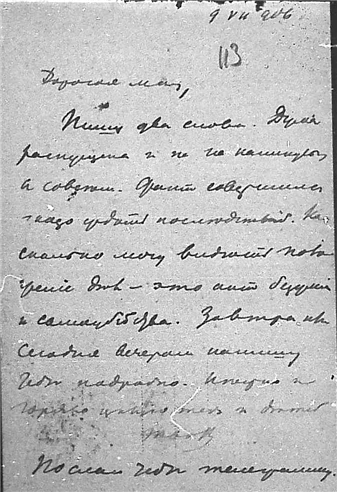 9 VII 906
113
Дорогая моя,
Пишу два слова. Дума
распущена и не на каникулы
а совсем. Факт совершился
надо ждать последствий. На
сколько могу видеть
это акт безумия
и самоубийства. Завтра или
сегодня вечером напишу
тебе подробно. Крепко и
горячо целую тебя и детей
Послал тебе телеграмму.